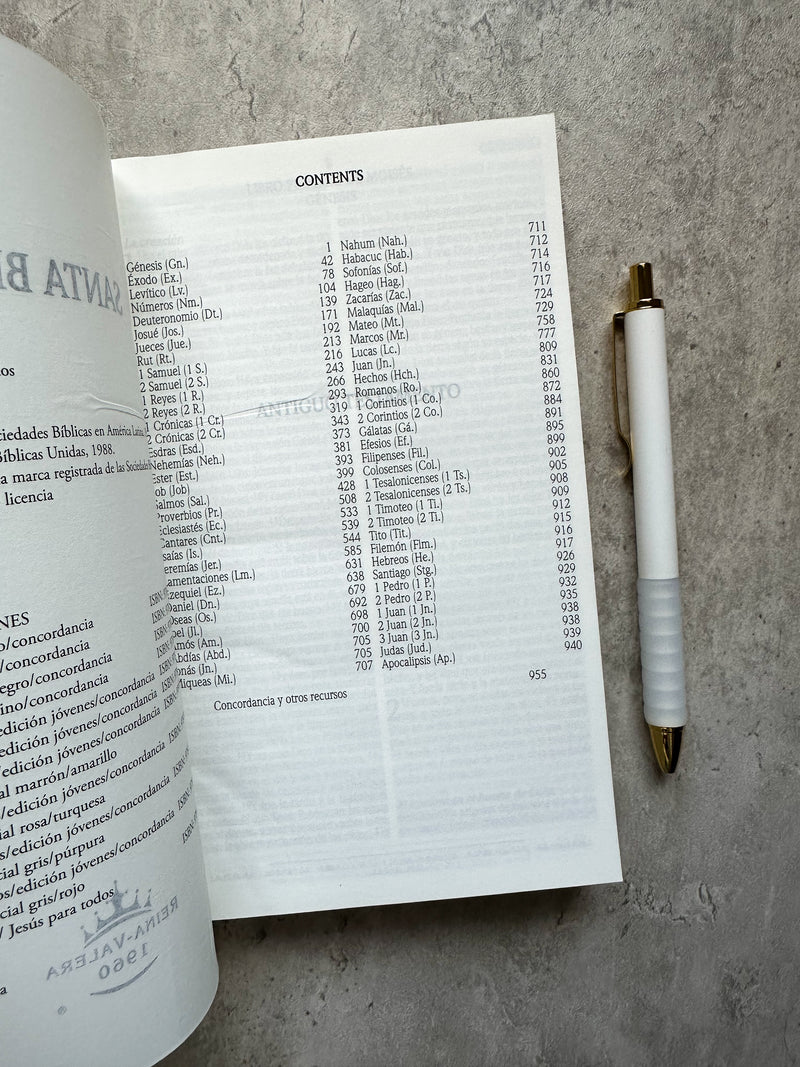 os
ciedades Bíblicas en América Latina,
Bíblicas Unidas, 1988.
a marca registrada de las Sociedades
licencia
NES
o/concordancia
/concordancia
negro/concordancia
ino/concordancia
edición jóvenes/concordancia
edición jóvenes/concordancia
/edición jóvenes/concordancia
al marrón/amarillo
/edición jóvenes/concordancia
cial rosa/turquesa
s/edición jóvenes/concordancia
cial gris/púrpura
os/edición jóvenes/concordancia
cial gris/rojo
/ Jesús para todos
SANTA BI
REINA-VALERA
1960
®
CONTENTS
Génesis (Gn.) 1
Éxodo (Ex.) 42
Levítico (Lv.) 78
Números (Nm.) 104
Deuteronomio (Dt.) 139
Josué (Jos.) 171
Jueces (Jue.) 192
Rut (Rt.) 213
1 Samuel (1 S.) 216
2 Samuel (2 S.) 243
1 Reyes (1 R.) 266
2 Reyes (2 R.) 293
1 Crónicas (1 Cr.) 319
2 Crónicas (2 Cr.) 343
Esdras (Esd.) 373
Nehemías (Neh.) 381
Ester (Est.) 393
Job (Job) 399
Salmos (Sal.) 428
Proverbios (Pr.) 508
Eclesiastés (Ec.) 533
Cantares (Cnt.) 539
Isaías (Is.) 544
Jeremías (Jer.) 585
Lamentaciones (Lm.) 631
Ezequiel (Ez.) 638
Daniel (Dn.) 679
Oseas (Os.) 692
Joel (Jl.) 698
Amós (Am.) 700
Abdías (Abd.) 705
Jonás (Jn.) 705
Miqueas (Mi.) 707
Nahum (Nah.) 711
Habacuc (Hab.) 712
Sofonías (Sof.) 714
Hageo (Hag.) 716
Zacarías (Zac.) 717
Malaquías (Mal.) 724
Mateo (Mt.) 729
Marcos (Mr.) 758
Lucas (Lc.) 777
Juan (Jn.) 809
Hechos (Hch.) 831
Romanos (Ro.) 860
1 Corintios (1 Co.) 872
2 Corintios (2 Co.) 884
Gálatas (Gá.) 891
Efesios (Ef.) 895
Filipenses (Fil.) 899
Colosenses (Col.) 902
1 Tesalonicenses (1 Ts.) 905
2 Tesalonicenses (2 Ts.) 908
1 Timoteo (1 Ti.) 909
2 Timoteo (2 Ti.) 912
Tito (Tit.) 915
Filemón (Flm.) 916
Hebreos (He.) 917
Santiago (Stg.) 926
1 Pedro (1 P.) 929
2 Pedro (2 P.) 932
1 Juan (1 Jn.) 935
2 Juan (2 Jn.) 938
3 Juan (3 Jn.) 938
Judas (Jud.) 939
Apocalipsis (Ap.) 940
Concordancia y otros recursos 955